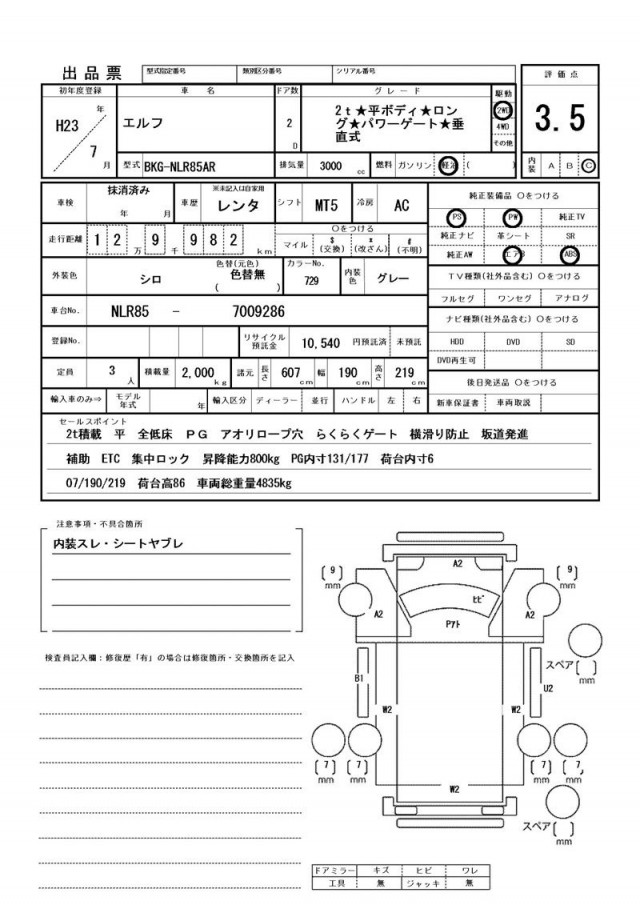 出品票 型式指定番号 類別区分番号 シリアル番号
評価点
初年度登録 車名 ドア数 グレード 駆動
H23 年 7 月
エルフ
2 D
2t★平ボディ★ロン
グ★パワーゲート★垂
直式
2WD
4WD
その他
3.5
型式 BKG-NLR85AR 排気量 3000 cc 燃料 ガソリン 軽油 ( )
内装 A B C
車検 抹消済み 年 月 車歴 ※未記入は自家用 レンタ シフト MT5 冷房 AC
純正装備品 ○をつける
PS PW 純正TV
純正ナビ 革シート SR
純正AW エアB ABS
走行距離 12万9千982km
○をつける
マイル $(交換) *(改ざん) #(不明)
外装色 シロ 色替(元色) 色替無 ( ) カラーNo. 729 内装色 グレー
TV種類(社外品含む) ○をつける
フルセグ ワンセグ アナログ
車台No. NLR85 - 7009286
ナビ種類(社外品含む) ○をつける
HDD DVD SD
DVD再生可
登録No. リサイクル預託金 10,540 円預託済 未預託
定員 3 人 積載量 2,000 kg 諸元 長さ 607 cm 幅 190 cm 高さ 219 cm
後日発送品 ○をつける
新車保証書 車両取説
輸入車のみ⇒ モデル年式 年 輸入区分 ディーラー 並行 ハンドル 左 右
セールスポイント
2t積載 平 全低床 PG アオリロープ穴 らくらくゲート 横滑り防止 坂道発進
補助 ETC 集中ロック 昇降能力800kg PG内寸131/177 荷台内寸6
07/190/219 荷台高86 車両総重量4835kg
注意事項・不具合箇所
内装スレ・シートヤブレ
検査員記入欄：修復歴「有」の場合は修復箇所・交換箇所を記入
A2
(9) mm
(9) mm
ヒビ
A2
A2
Pアト
スペア( ) mm
B1
U2
W2
W2
(7) mm
(7) mm
(7) mm
(7) mm
W2
スペア( ) mm
ドアミラー キズ ヒビ ワレ
工具 無 ジャッキ 無